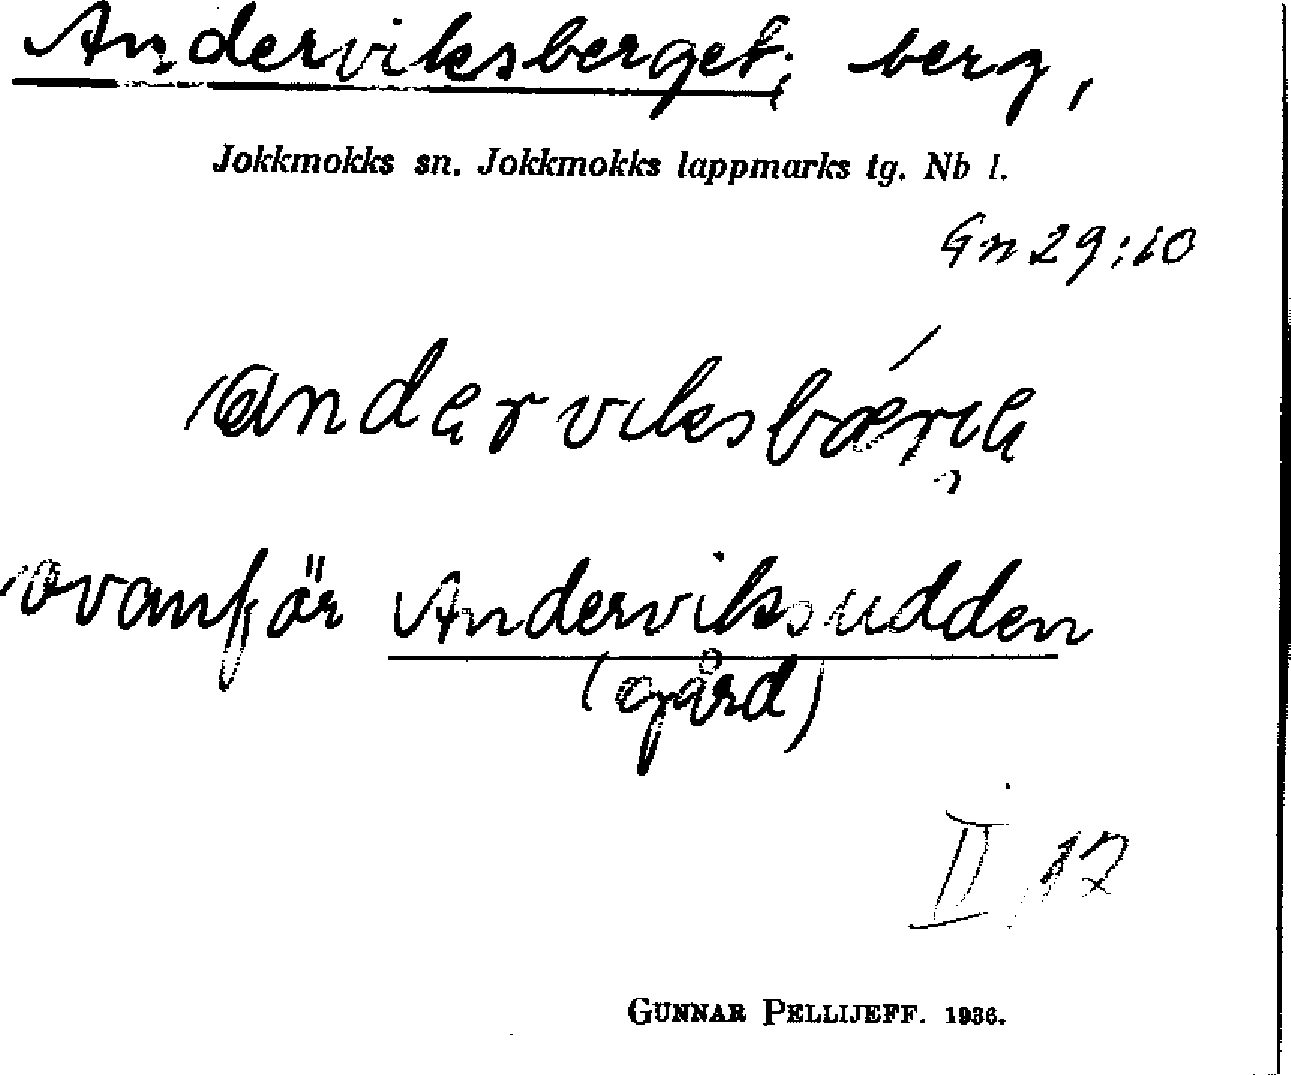 Anderviksberget; berg,
Jokkmokks sn. Jokkmokks lappmarks tg. Nb l.
Gn 29:10
ovanför Anderviksudden
(gård)
II 12
GUNNAR PELLIJEFF. 1936.